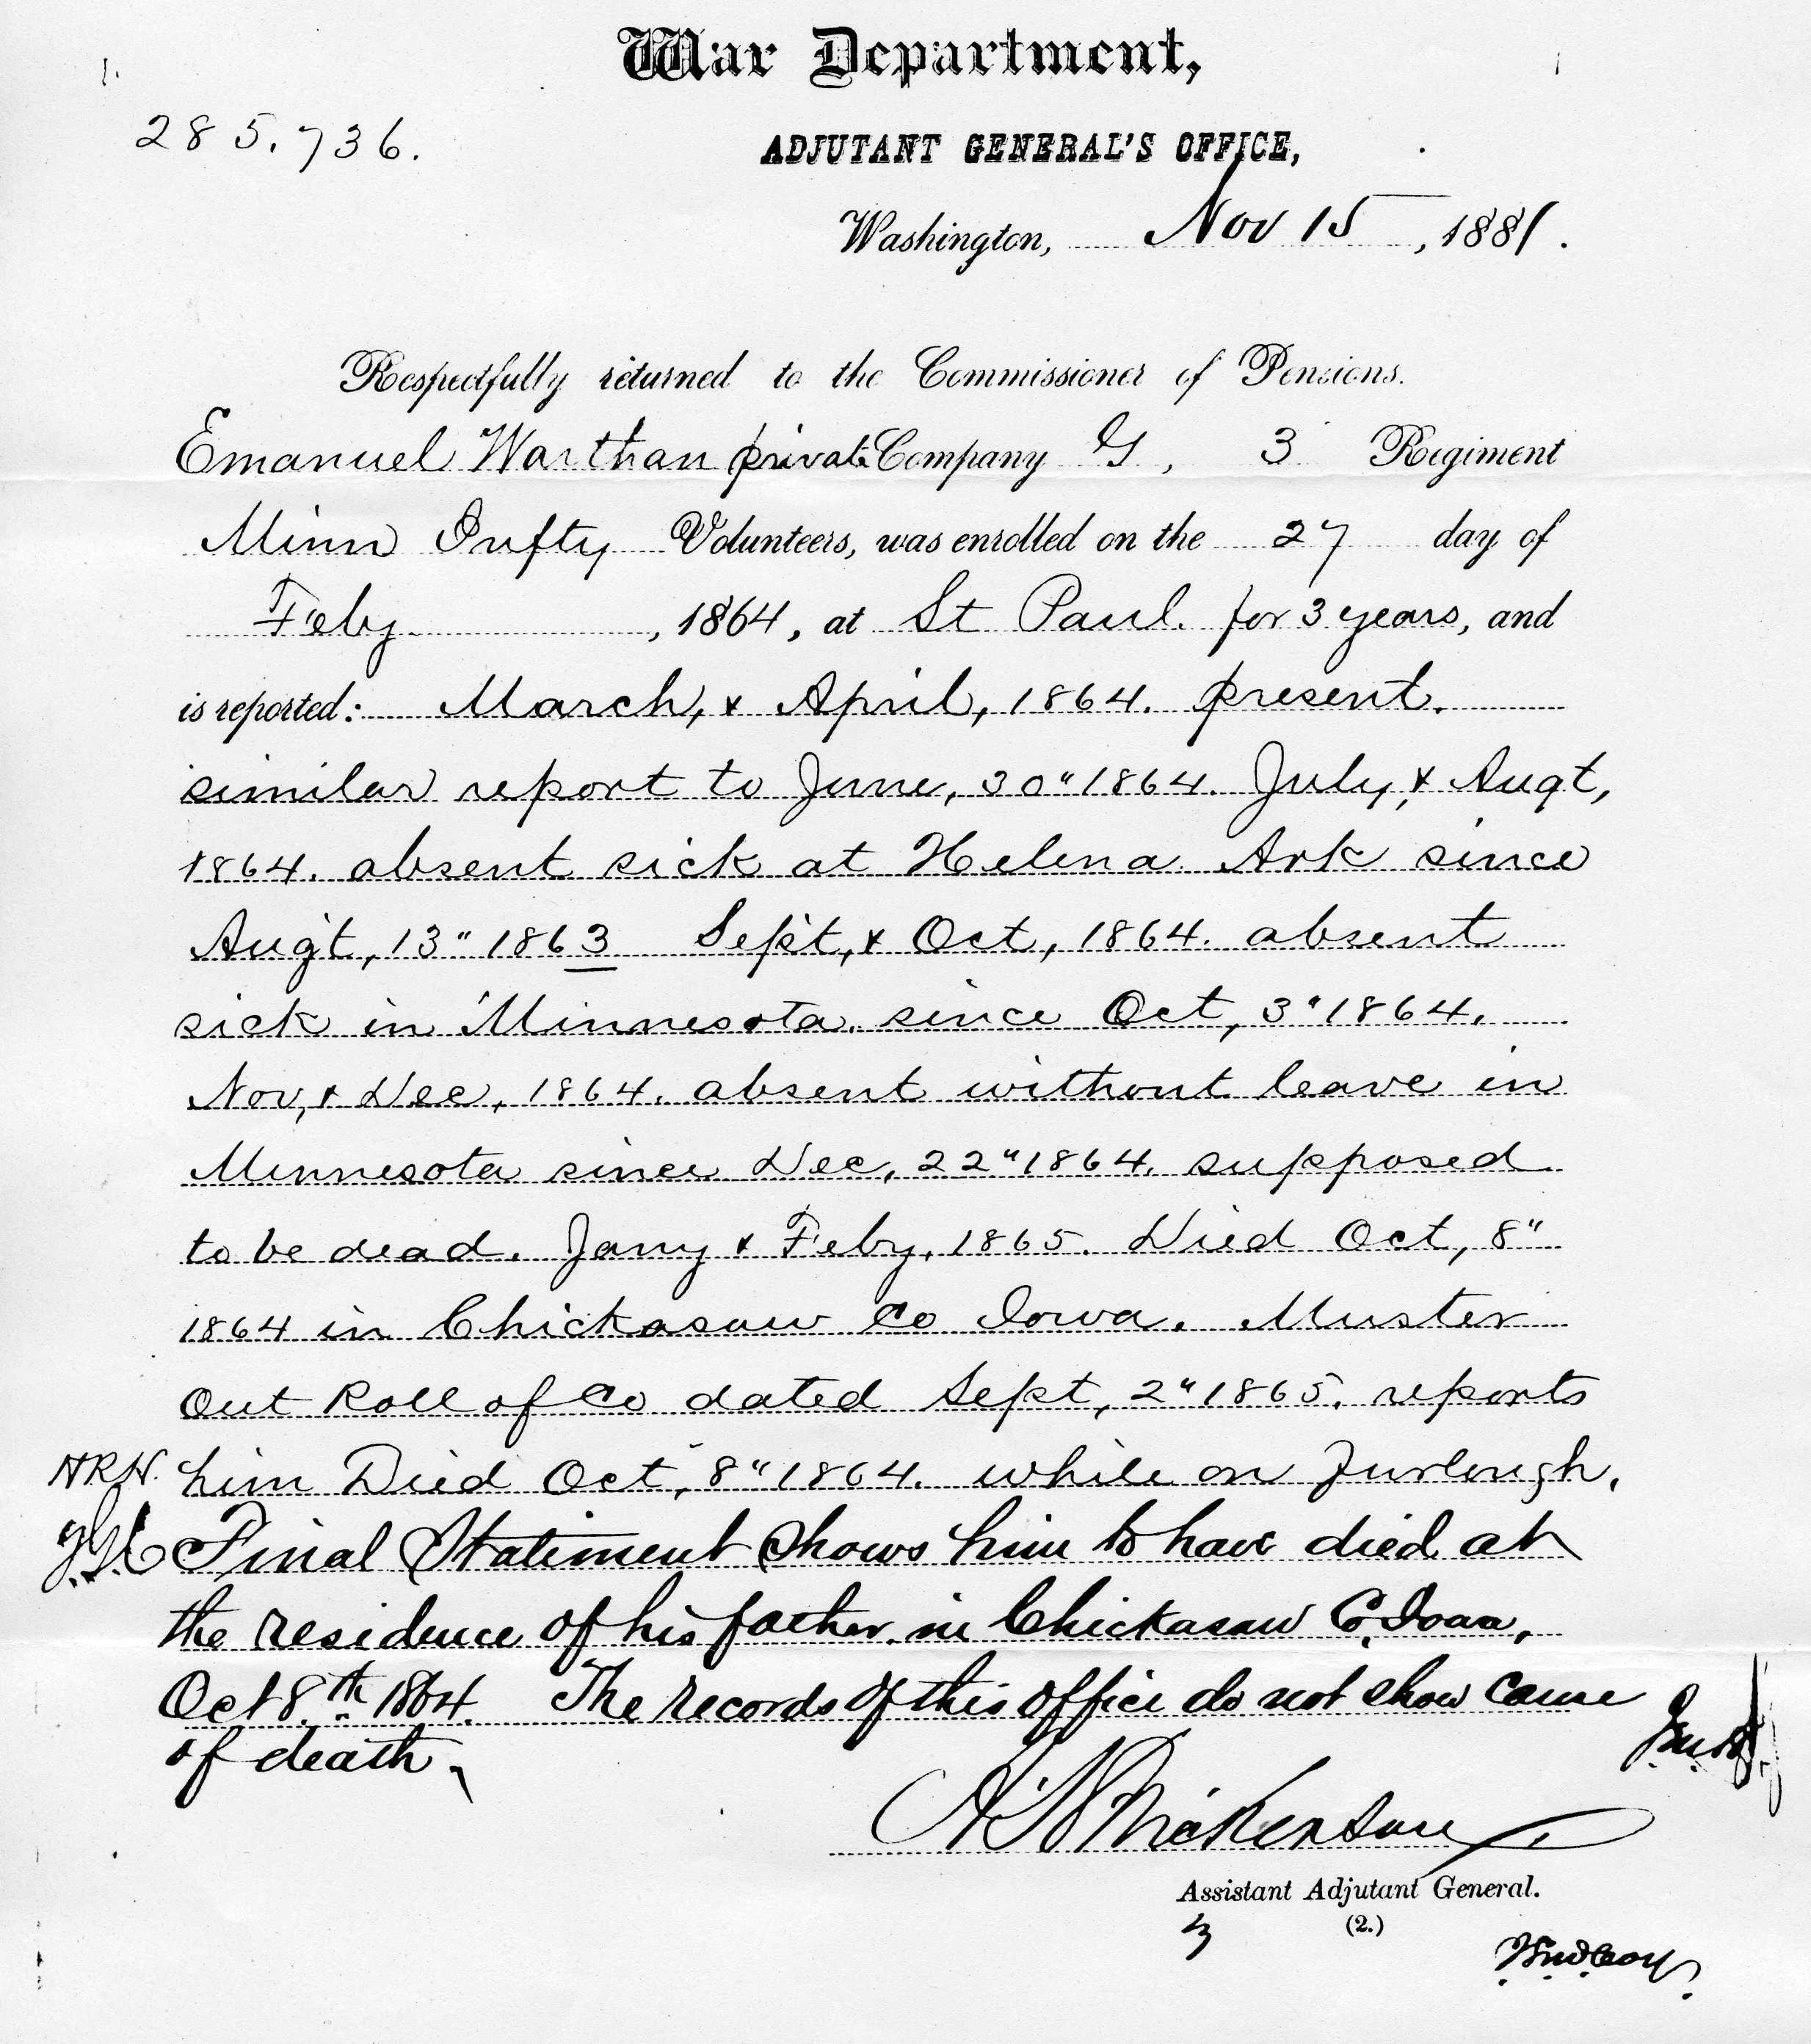 War Department,
285.736.
ADJUTANT GENERAL'S OFFICE,
Washington, Nov 15, 1881.
Respectfully returned to the Commissioner of Pensions.
Emanuel Warthan private Company G, 3 Regiment
Minn Infty Volunteers, was enrolled on the 27 day of
Feby, 1864, at St Paul. for 3 years, and
is reported: March, & April, 1864. present.
similar report to June, 30" 1864. July, & Augt,
1864. absent sick at Helena Ark since
Augt, 13" 1863 Sept, & Oct, 1864. absent
sick in Minnesota. since Oct, 3" 1864.
Nov, & Dec, 1864. absent without leave in
Minnesota since Dec, 22" 1864. supposed
to be dead. Jany & Feby, 1865. Died Oct, 8"
1864 in Chickasaw Co Iowa. Muster
Out Roll of Co dated Sept, 2" 1865. reports
HRN. him Died Oct, 8" 1864. while on Furlough.
Final Statement shows him to have died at
the residence of his father in Chickasaw Co, Iowa,
Oct 8th 1864. The records of this office do not show cause
of death.
Assistant Adjutant General.
(2.)